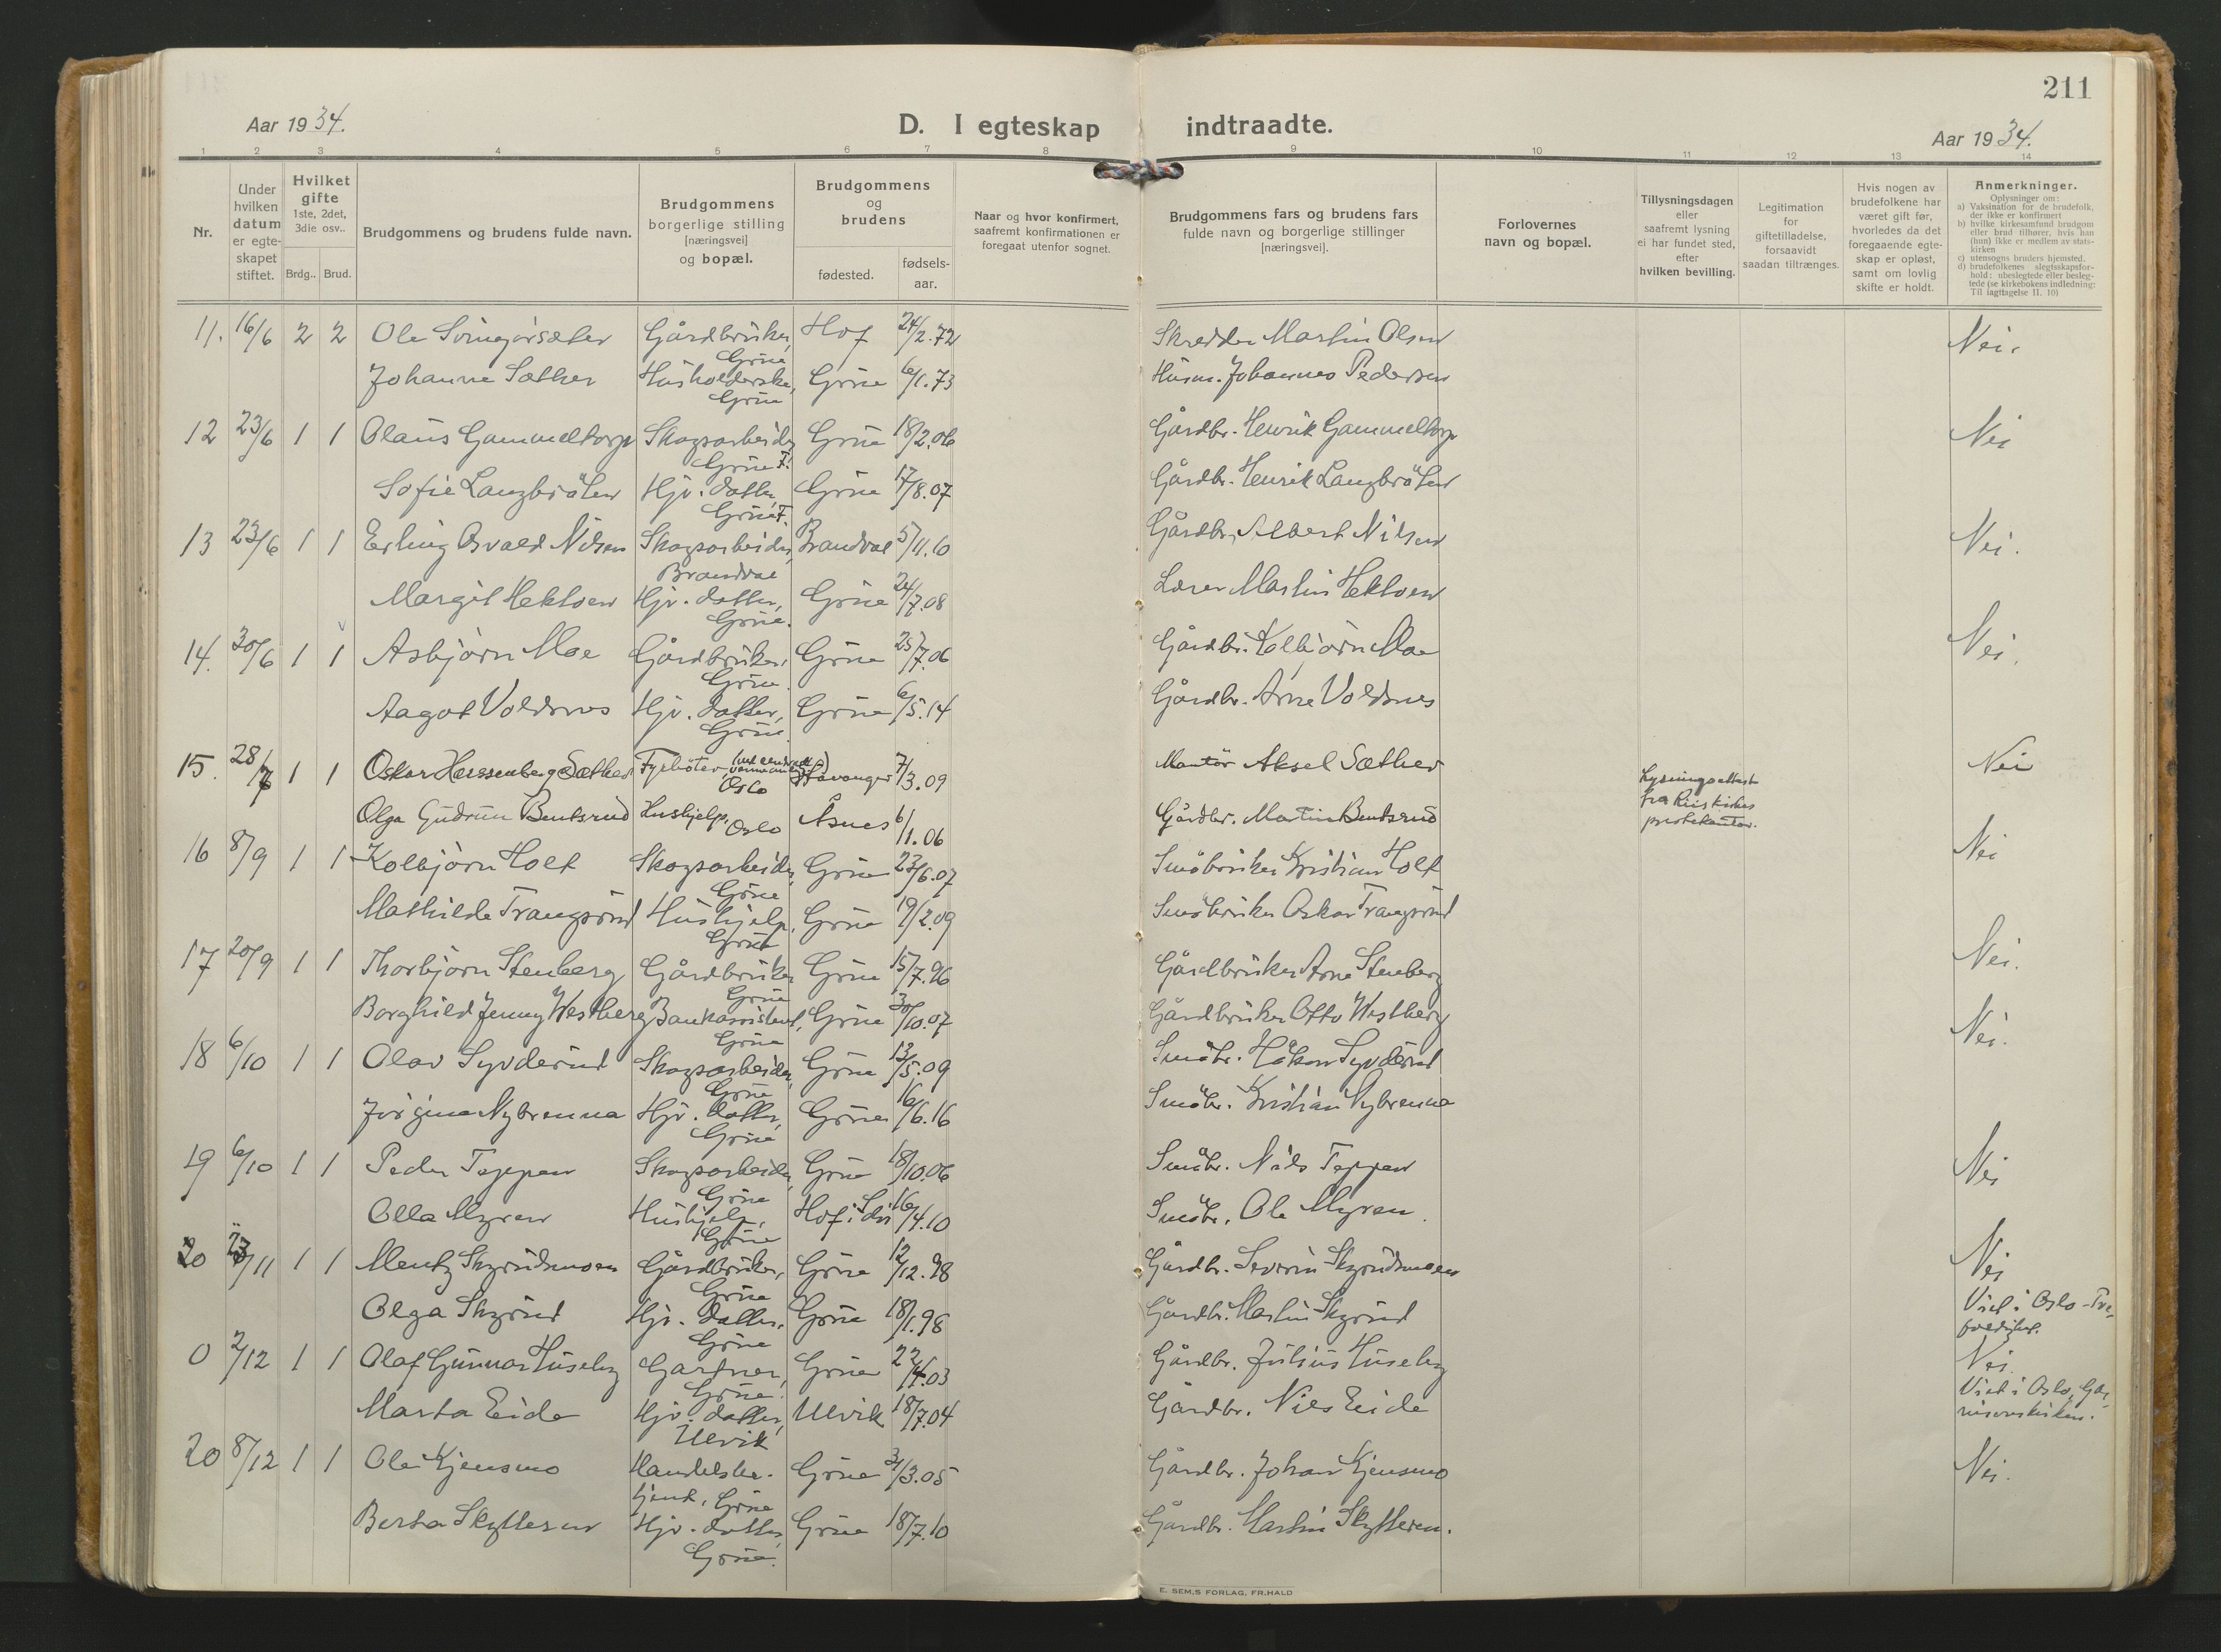 211
Aar 1934.
D. I egteskap indtraadte.
Aar 1934.
1 2 3 4 5 6 7 8 9 10 11 12 13 14
Nr.
Under hvilken datum er egteskapet stiftet.
Hvilket gifte 1ste, 2det, 3die osv..
Brdg.. Brud.
Brudgommens og brudens fulde navn.
Brudgommens borgerlige stilling [næringsvei] og bopæl.
Brudgommens og brudens
fødested.
fødsels-aar.
Naar og hvor konfirmert, saafremt konfirmationen er foregaat utenfor sognet.
Brudgommens fars og brudens fars fulde navn og borgerlige stillinger [næringsvei].
Forlovernes navn og bopæl.
Tillysningsdagen eller saafremt lysning ei har fundet sted, efter hvilken bevilling.
Legitimation for giftetilladelse, forsaavidt saadan tiltrænges.
Hvis nogen av brudefolkene har været gift før, hvorledes da det foregaaende egte-skap er opløst, samt om lovlig skifte er holdt.
Anmerkninger.
Oplysninger om:
a) Vaksination for de brudefolk, der ikke er konfirmert
b) hvilke kirkesamfund brudgom eller brud tilhører, hvis han (hun) ikke er medlem av stats-kirken
c) utensogns bruders hjemsted.
d) brudefolkenes slegtsskapsfor-hold: ubeslegtede eller besleg-tede (se kirkebokens indledning: Til iagttagelse II. 10)
11. 16/6 2 2 Ole Gårdbruker, Hof 24/2.72 Skredder Martin Olsen Nei.
Grue
Johanne Sæther Husholderske, Grue 6/1.73 Husm. Johannes Pedersen
Grue
12 23/6 1 1 Olaus Gammeltorp Skogsarbeider Grue 18/2.06 Gårdbr. Henrik Gammeltorp Nei
Grue F.
Sofie Langbråten Hjv. datter, Grue 17/8.07 Gårdbr. Henrik Langbråten
Grue F.
13 23/6 1 1 Erling Osvald Nilsen Skogsarbeider, Brandval 5/11.10 Gårdbr. Albert Nilsen Nei.
Brandval
Margit Hektoen Hjv. datter, Grue 24/7.08 Lærer Martin Hektoen
Grue.
14. 30/6 1 1 Asbjørn Moe Gårdbruker, Grue 25/7.06 Gårdbr. Kolbjørn Moe Nei.
Grue.
Aagot Voldsnes Hjv. datter, Grue 6/5.14 Gårdbr. Arne Voldsnes
Grue.
15. 28/7 1 1 Oskar Sæther Fyrbøter Stavanger 7/3.09 Aksel Sæther Nei
Oslo
Lysningsattest
fra Riis kirkes
Olga Gudrun Bentsrud Hushjelp, Oslo Åsnes 6/1.06 Gårdbr. Martin Bentsrud
16 8/9 1 1 Kolbjørn Holt Skogsarbeider, Grue 23/6.07 Småbruker Kristian Holt Nei
Grue
Mathilde Trangsrud Hushjelp, Grue 19/2.09 Småbruker Oskar Trangsrud
Grue
17 20/9 1 1 Thorbjørn Stenberg Gårdbruker Grue 15/7.96 Gårdbruker Arne Stenberg Nei.
Grue
Borghild Jenny Westberg Bankassistent, Grue 30/10.07 Gårdbruker Otto Westberg
Grue
18 6/10 1 1 Olav Syvderud Skogsarbeider, Grue 13/5.09 Småbr. Håkon Syvderud Nei.
Grue
Jørgine Nybrenna Hjv. datter, Grue 16/6.16 Småbr. Kristian Nybrenna
Grue
19 6/10 1 1 Peder Teppen Skogsarbeider, Grue 18/10.06 Småbr. Nils Teppen Nei
Grue
Olla Myren Hushjelp, Hof i Solør 16/4.10 Småbr. Ole Myren.
Grue
20 23/11 1 1 Mentz Skyrudsmoen Gårdbruker, Grue 12/12.98 Gårdbr. Severin Skyrudsmoen Nei
Grue
Olga Skyrud Hjv. datter, Grue 18/1.98 Gårdbr. Martin Skyrud Viet i Oslo - Tre-
foldighet.
Grue
0 2/12 1 1 Olaf Gunnar Huseby Gartner, Grue 22/4.03 Gårdbr. Julius Huseby Nei.
Grue.
Marta Eide Hjv. datter, Ulvik 18/7.04 Gårdbr. Nils Eide Viet i Oslo, Gar-
nisonskirken.
Ulvik
20 8/12 1 1 Ole Kjensmo Handelsbe- Grue 31/3.05 Gårdbr. Johan Kjensmo Nei.
tjent, Grue
Berta Skytteren Hjv. datter, Grue 18/7.10 Gårdbr. Martin Skytteren.
Grue.
E. SEM.S FORLAG, FR.HALD